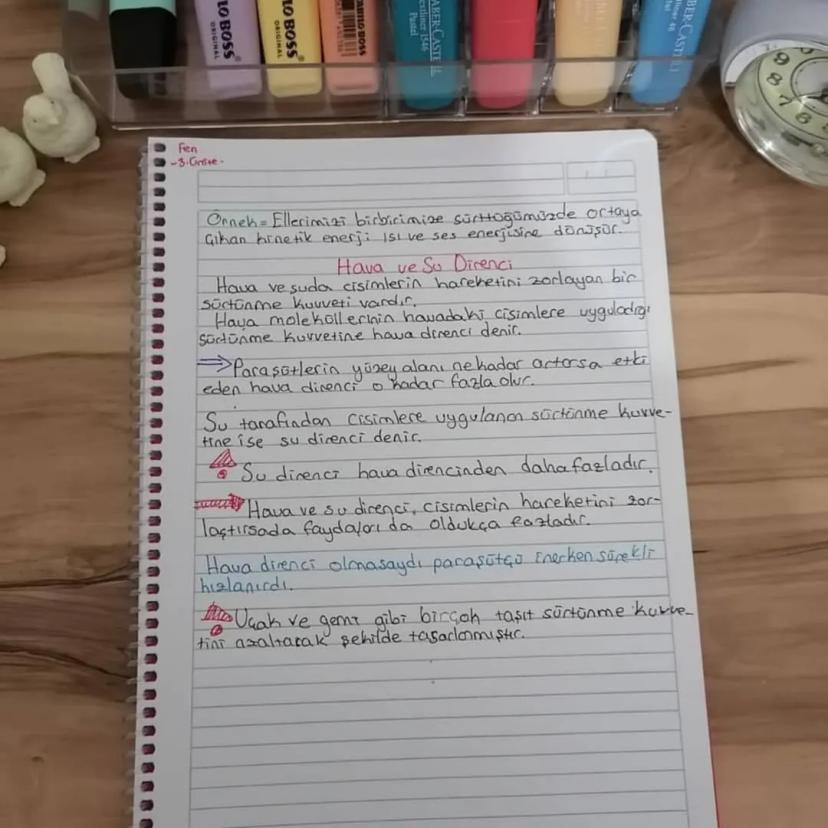 BOSS
ORIGINAL
LO BOSS
ORIGINAL
STABILO BOSS
ORIGINAL
FABER-CASTELL
Textliner 1546
Pastel
FABER-CASTELL
Textliner 46
Fen
-3.Ünite-
Örnek = Ellerimizi birbirimize sürttüğümüzde ortaya
çıkan kinetik enerji ısı ve ses enerjisine dönüşür.
Hava ve Su Direnci
Hava ve suda cisimlerin hareketini zorlayan bir
sürtünme kuvveti vardır.
Hava moleküllerinin havadaki cisimlere uyguladığı
sürtünme kuvvetine hava direnci denir.
⇒ Paraşütlerin yüzey alanı ne kadar artarsa etki
eden hava direnci o kadar fazla olur.
Su tarafından cisimlere uygulanan sürtünme kuvve-
tine ise su direnci denir.
Su direnci hava direncinden daha fazladır.
Hava ve su direnci, cisimlerin hareketini zor-
laştırsada faydaları da oldukça fazladır.
Hava direnci olmasaydı paraşütçü inerken sürekli
hızlanırdı.
Uçak ve gemi gibi birçok taşıt sürtünme kuvve-
tini azaltacak şekilde tasarlanmıştır.